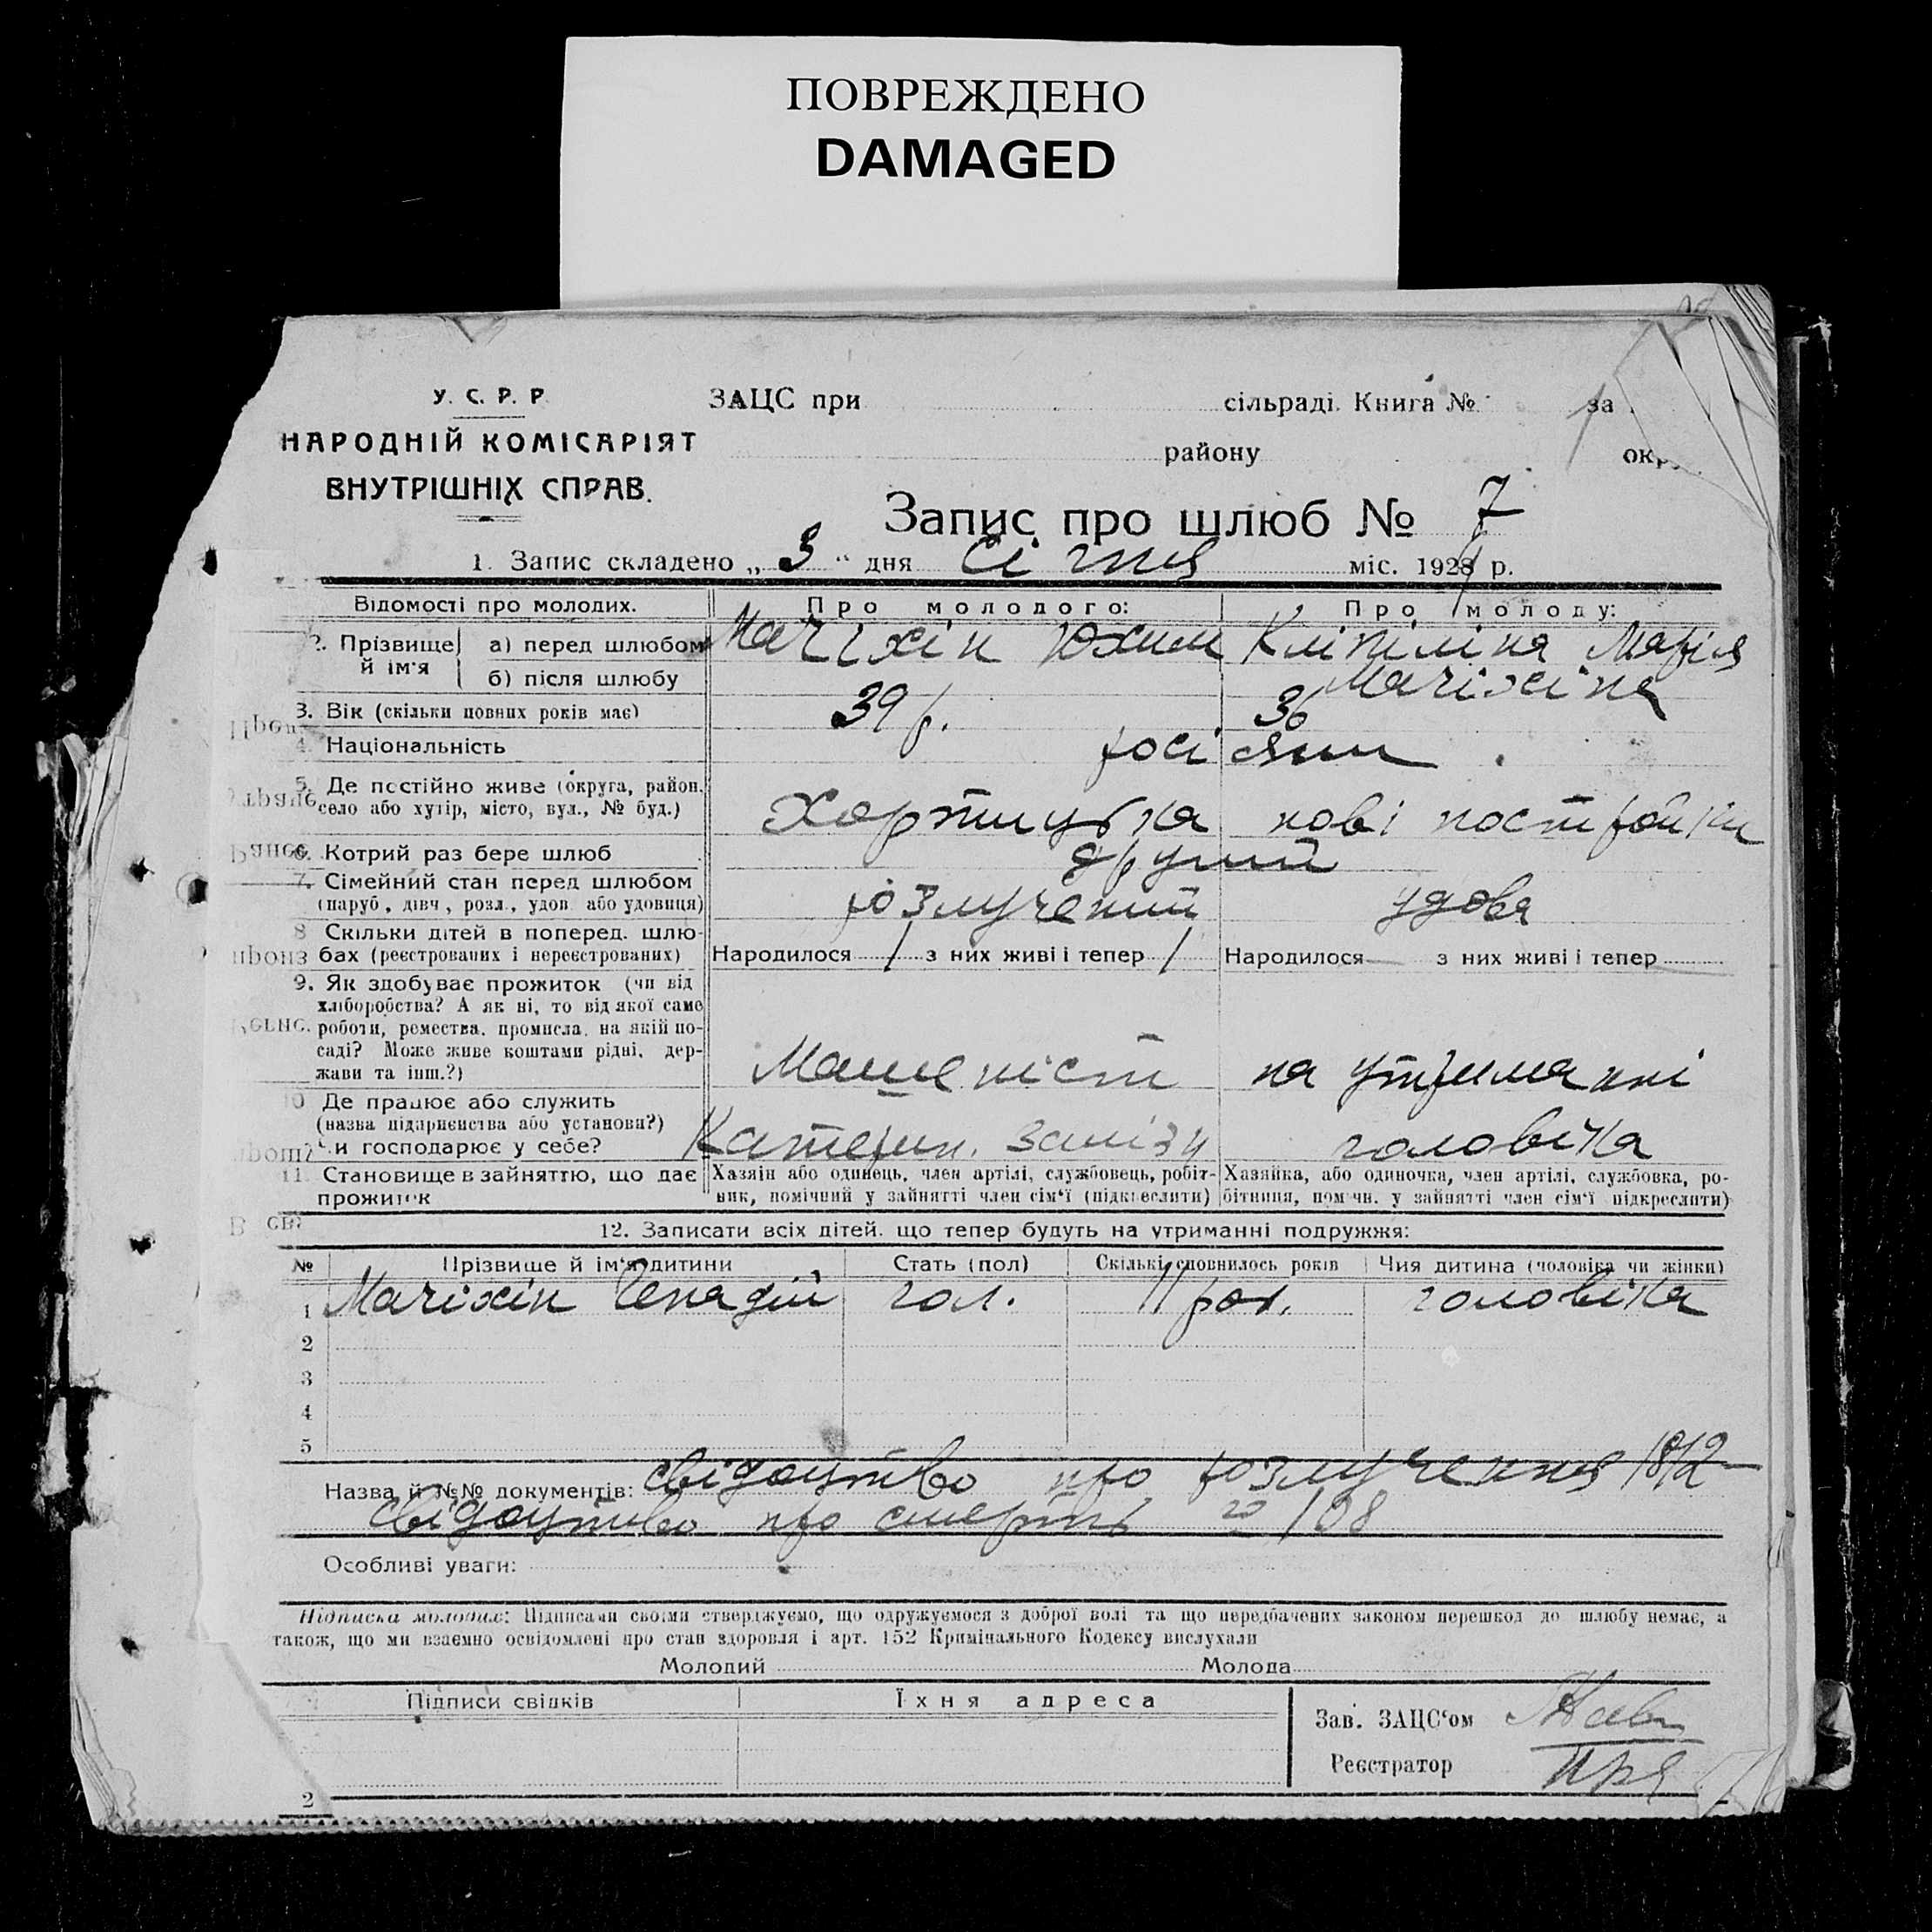 ПОВРЕЖДЕНО
DAMAGED
У. С. Р. Р.
НАРОДНІЙ КОМІСАРІЯТ
ВНУТРІШНІХ СПРАВ.
ЗАЦС при сільраді. Книга № 1 за
району
Запис про шлюб № 7
1. Запис складено „3“ дня січня міс. 192 р.
Відомості про молодих. Про молодого: Про молоду:
2. Прізвище й ім'я а) перед шлюбом Мачіхін Юхим Кліпіліна Марія
б) після шлюбу Мачіхіна
3. Вік (скільки повних років має) 39 р. 36
4. Національність росіяни
5. Де постійно живе (округа, район, село або хутір, місто, вул., № буд.) Хортицька нові постройки
6. Котрий раз бере шлюб другий
7. Сімейний стан перед шлюбом (паруб., дівч., розл., удов. або удовиця) розлучений удова
8. Скільки дітей в поперед. шлюбах (реєстрованих і нереєстрованих) Народилося 1 з них живі і тепер 1 Народилося — з них живі і тепер —
9. Як здобуває прожиток (чи від
хліборобства? А як ні, то від якої саме
роботи, ремества, промисла, на якій по-
саді? Може живе коштами рідні, дер-
жави та інш.?) Машеніст на утриманні
10. Де працює або служить
(назва підприємства або установи?)
Чи господарює у себе? Катерин. залізн чоловіка
11. Становище в зайняттю, що дає прожиток
Хазяін або одинець, член артілі, службовець, робіт-
ник, помічний у зайнятті член сім'ї (підкреслити)
Хазяйка, або одиночка, член артілі, службовка, ро-
бітниця, пом чн. у зайнятті член сім'ї підкреслити)
12. Записати всіх дітей, що тепер будуть на утриманні подружжя:
№ Прізвище й ім'я дитини Стать (пол) Скількі сповнилось років Чия дитина (чоловіка чи жінки)
1 Мачіхін Генадій чол. 11 рок. чоловіка
2
3
4
5
Назва й №№ документів: свідоцтво про розлучення 1812
свідоцтво про смерть 20/108
Особливі уваги:
Підписка молодих: Підписами своїми стверджуємо, що одружуємося з доброї волі та що передбачених законом перешкод до шлюбу немає, а
також, що ми взаємно освідомлені про стан здоровля і арт. 152 Кримінального Кодексу вислухали
Молодий Молода
Підписи свідків Їхня адреса
Зав. ЗАЦС'ом
Реєстратор
2